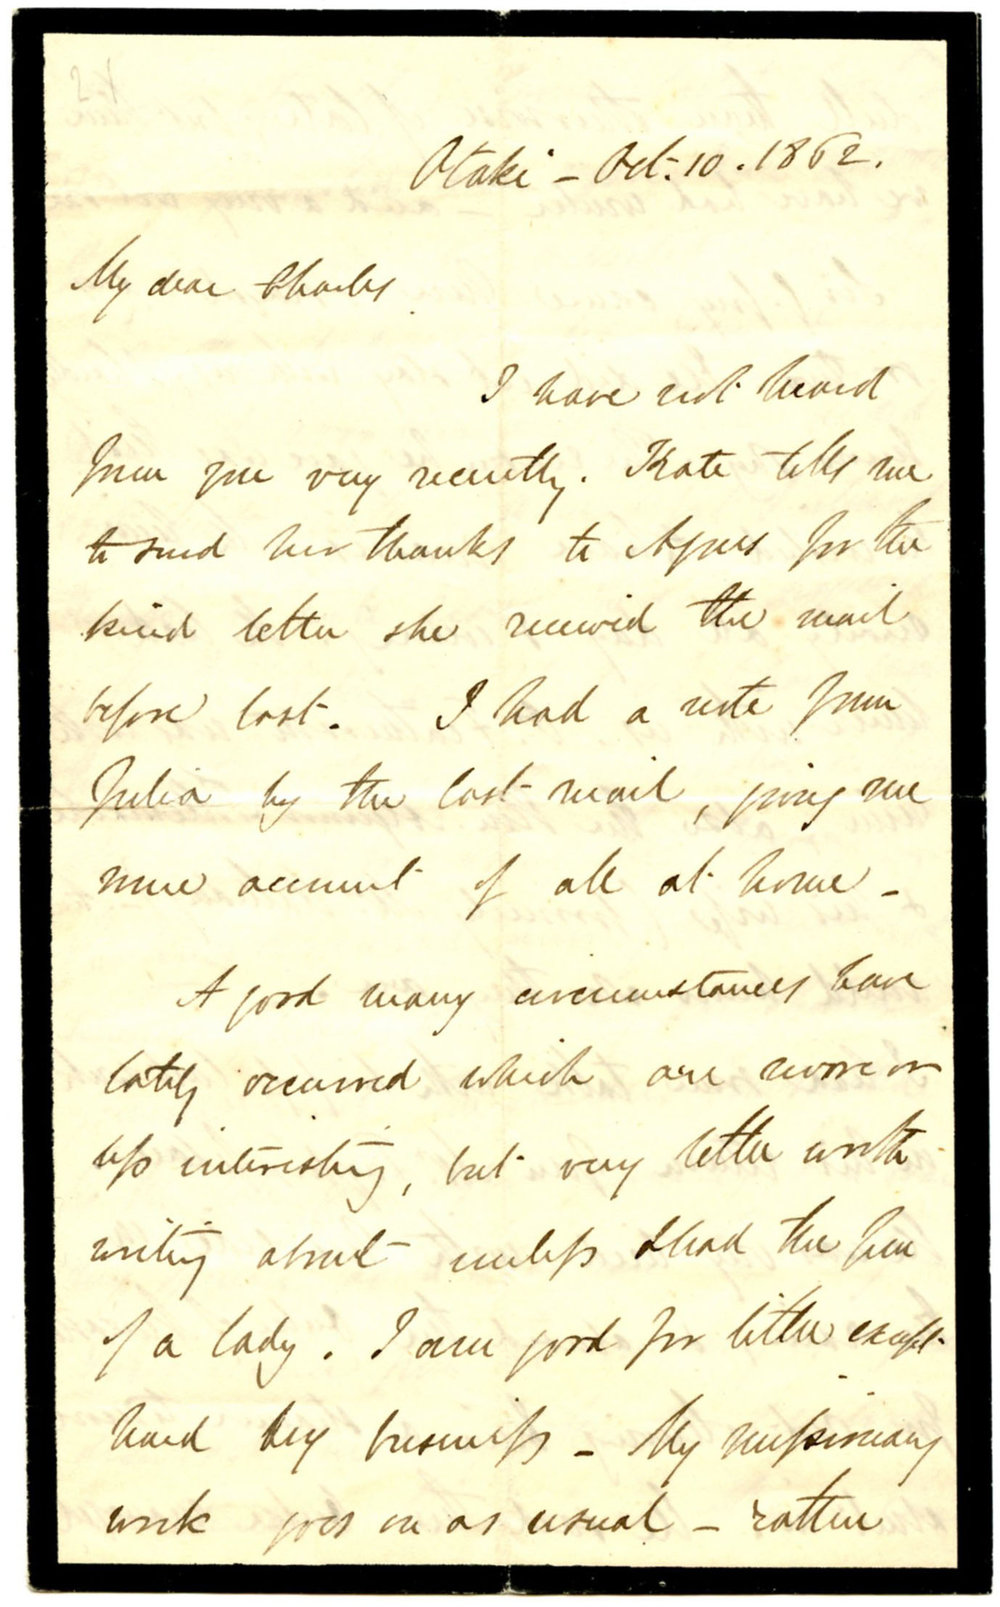 Otaki - Oct. 10. 1862.
My dear Charles
I have not heard
from you very recently. Kate tells me
to send her thanks to Agnes for the
kind letter she received the mail
before last. I had a note from
Julia by the last mail, giving me
some account of all at home -
A good many circumstances have
lately occurred which are more or
less interesting, but very little worth
writing about unless I had the pen
of a lady. I am good for little except
hard dry business - My missionary
work goes on as usual - rather